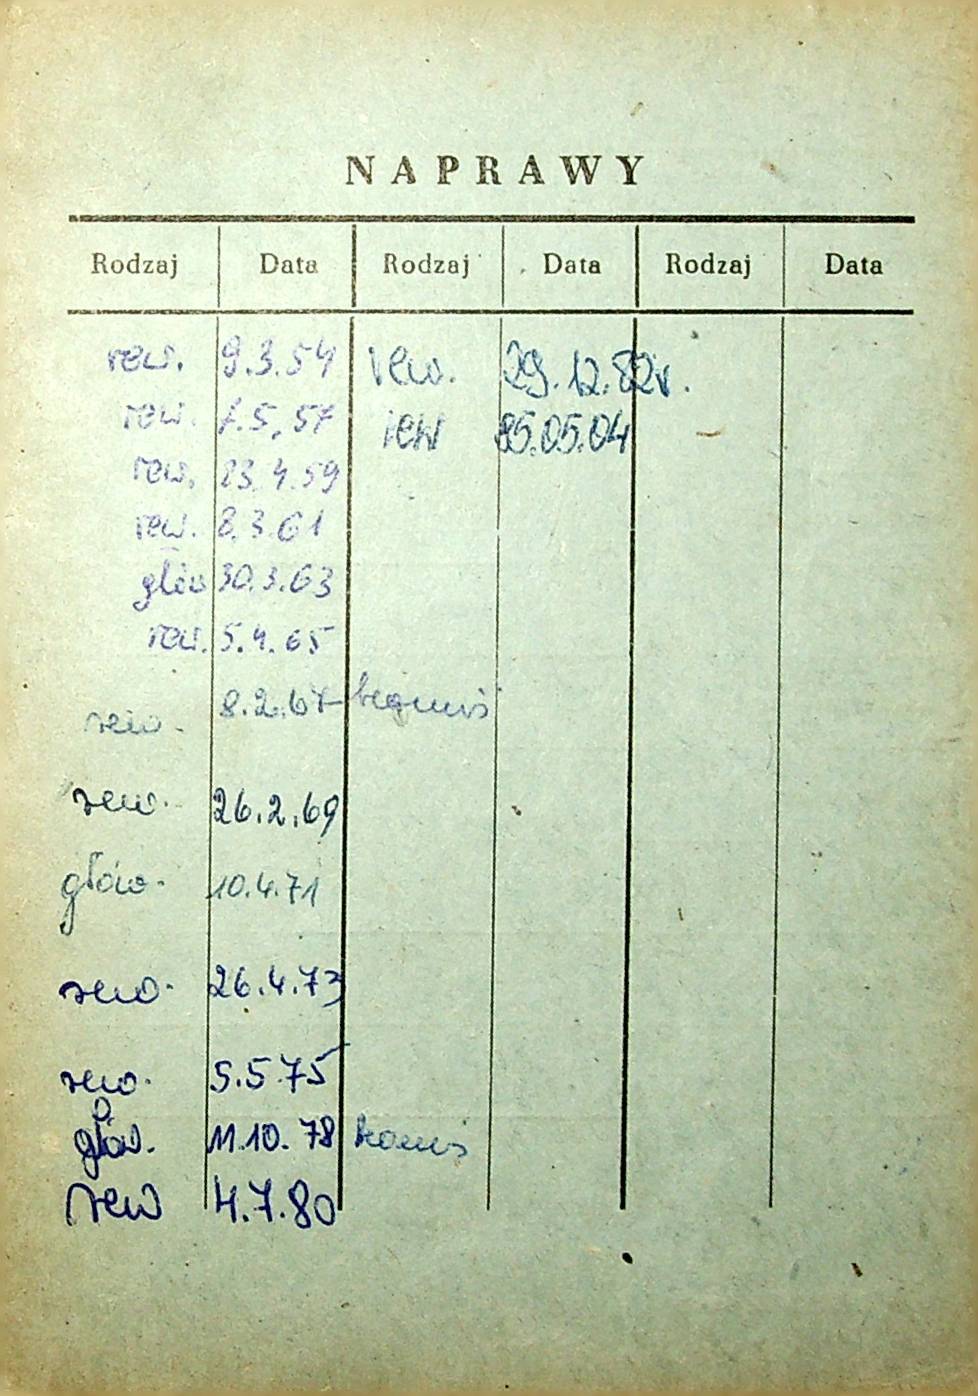 NAPRAWY
Rodzaj Data Rodzaj Data Rodzaj Data
rew. 9.3.54 rew. 29.12.82r.
rew. 1.5.57 rew 85.05.04
rew. 23.4.59
rew. 8.3.61
głów 30.3.63
rew. 5.4.65
rew. 8.2.67
rew. 26.2.69
głów. 10.4.71
rew. 26.4.73
rew. 5.5.75
głów. 11.10.78
rew 4.7.80